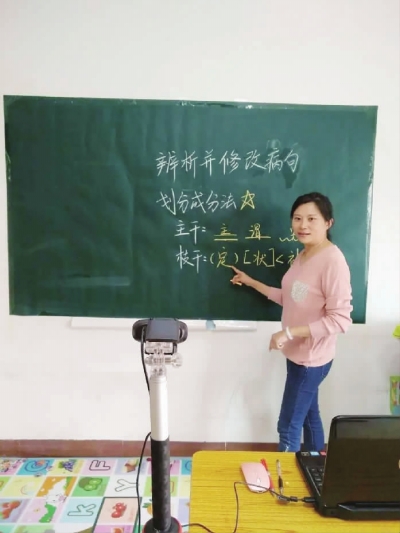 辨析并修改病句
划分成分法☆
主干: 主 谓
枝干:(定)[状]<补